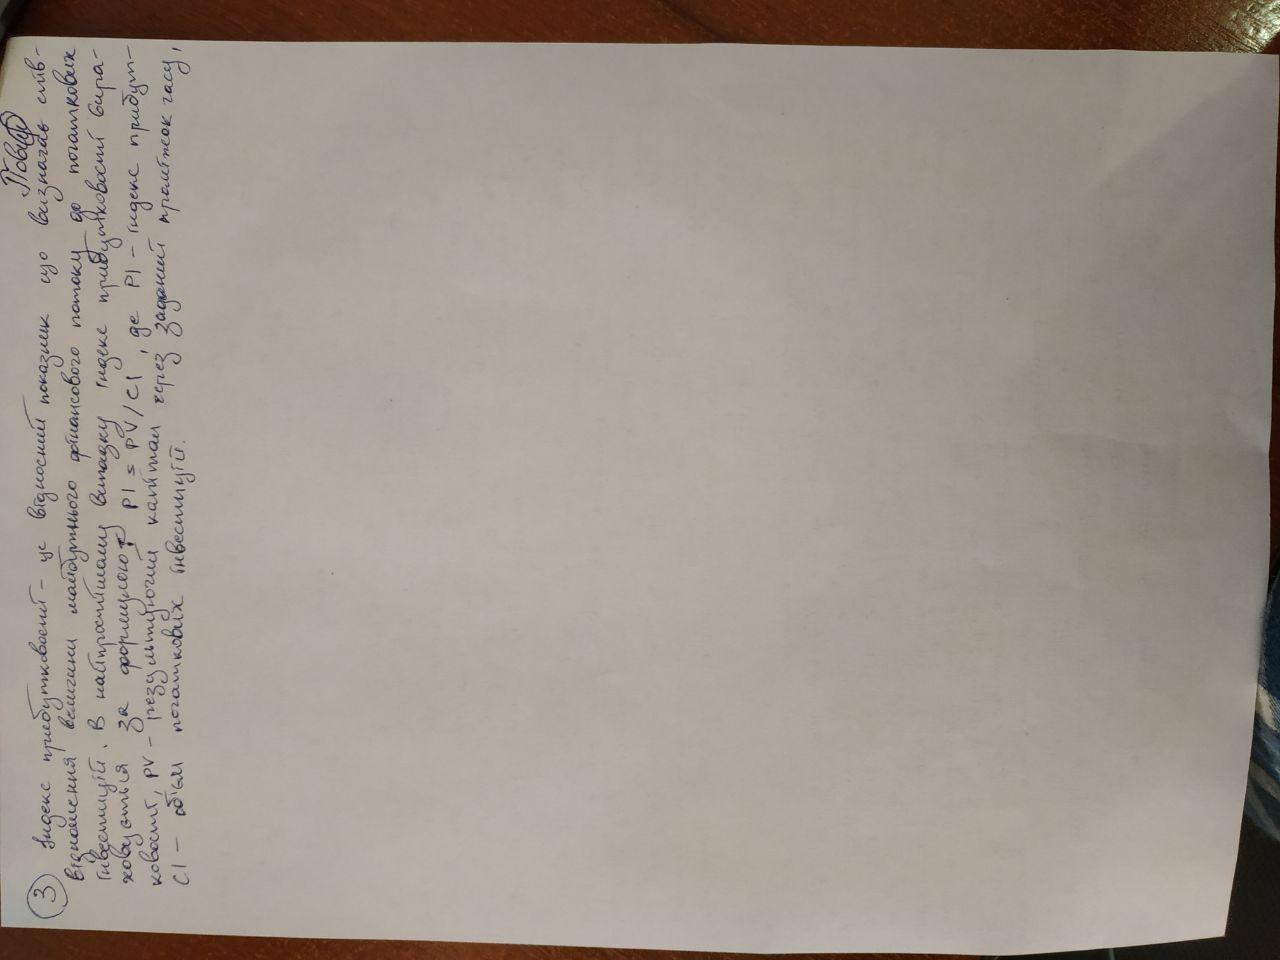 ③ Індекс прибутковості - це відносний показник що визначає спів-
відношення величини майбутнього фінансового потоку до початкових
інвестицій. В найпростішому випадку індекс прибутковості вира-
ховується за формулою PI = PV/CI, де PI - індекс прибут-
ковості, PV - результуючий капітал через заданий проміжок часу,
CI - об'єм початкових інвестицій.